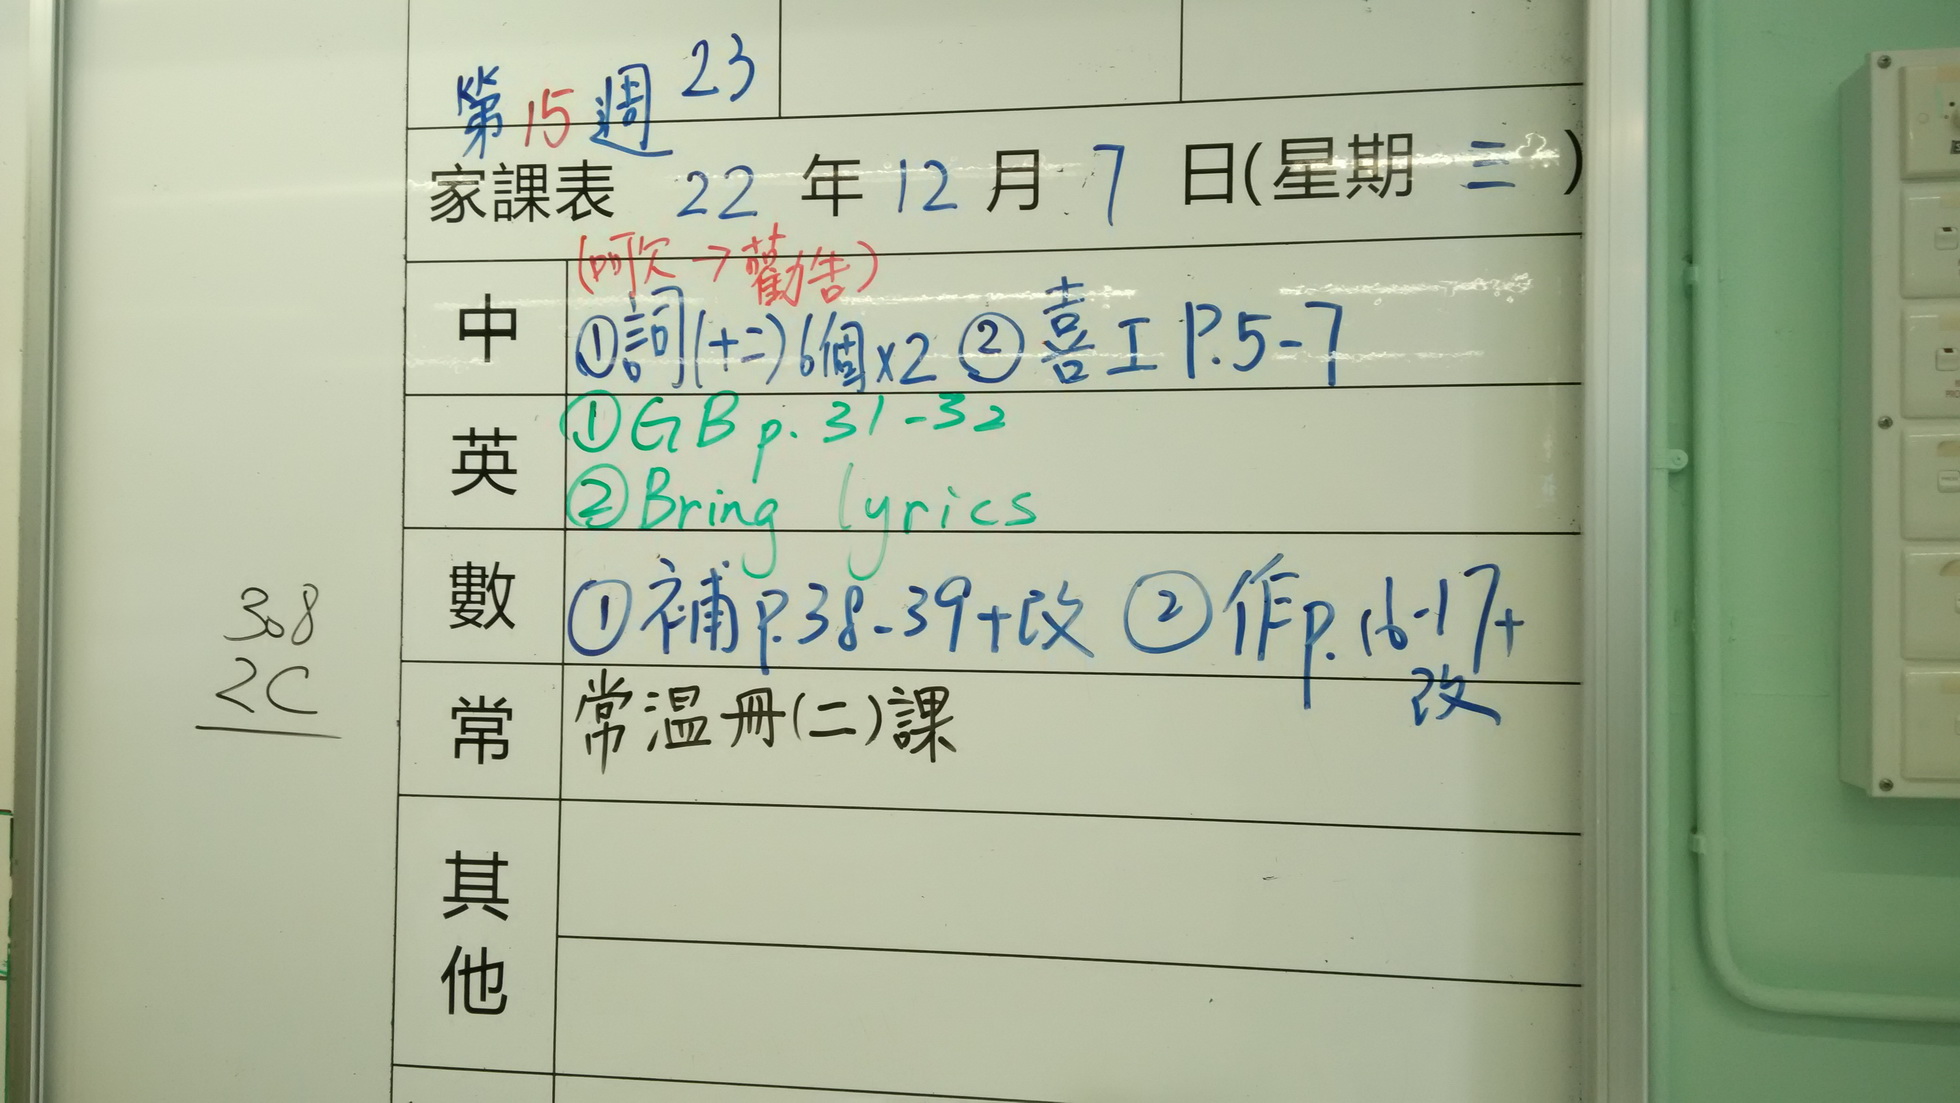 第15週 23
家課表 22 年 12 月 7 日(星期 三 )
(呵欠→勸告)
中 ①詞(十二)6個x2 ②喜工 P.5-7
英 ①GB p. 31-32
②Bring lyrics
數 ①補p.38-39+改 ②作p.16-17+
改
常 常温冊(二)課
其他
308
2C